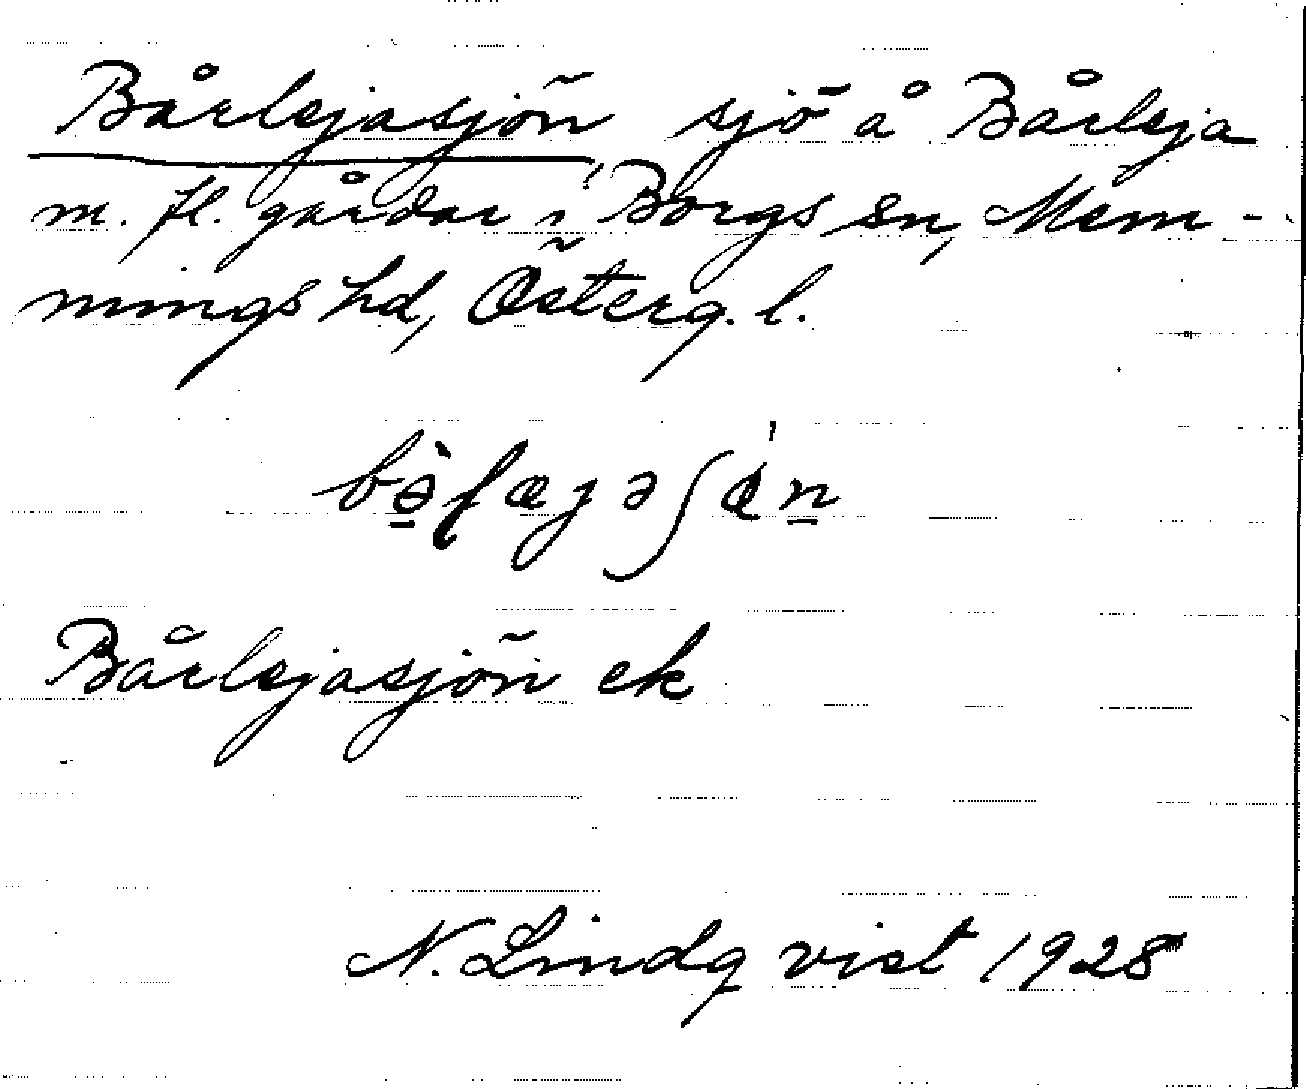 Bårlejasjön sjö å Bårleja
m. fl. gårdar i Borgs sn, Mem-
mings hd, Österg. l.
Bårlejasjön ek
N. Lindqvist 1928